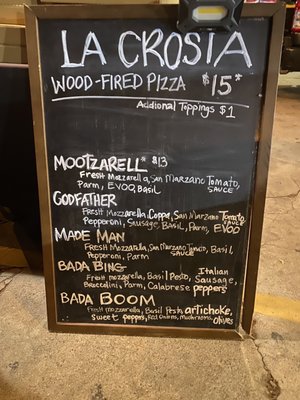 LA CROSTA
WOOD-FIRED PIZZA $15*
Addional Toppings $1
MOOTZARELL* $13
Fresh Mozzarella, San Marzano Tomato, SAUCE
Parm, EVOO, Basil
GODFATHER
Fresh Mozzarella, Coppa, San Marzano Tomato SAUCE
Pepperoni, Sausage, Basil, Parm, EVOO
MADE MAN
Fresh Mozzarella, San Marzano Tomato, SAUCE Basil,
Pepperoni, Parm
BADA BING
Fresh mozzarella, Basil Pesto, Italian Sausage,
Broccolini, Parm, Calabrese peppers
BADA BOOM
Fresh mozzarella, Basil Pesto, artichoke,
sweet peppers, Red Onions, Mushrooms, olives